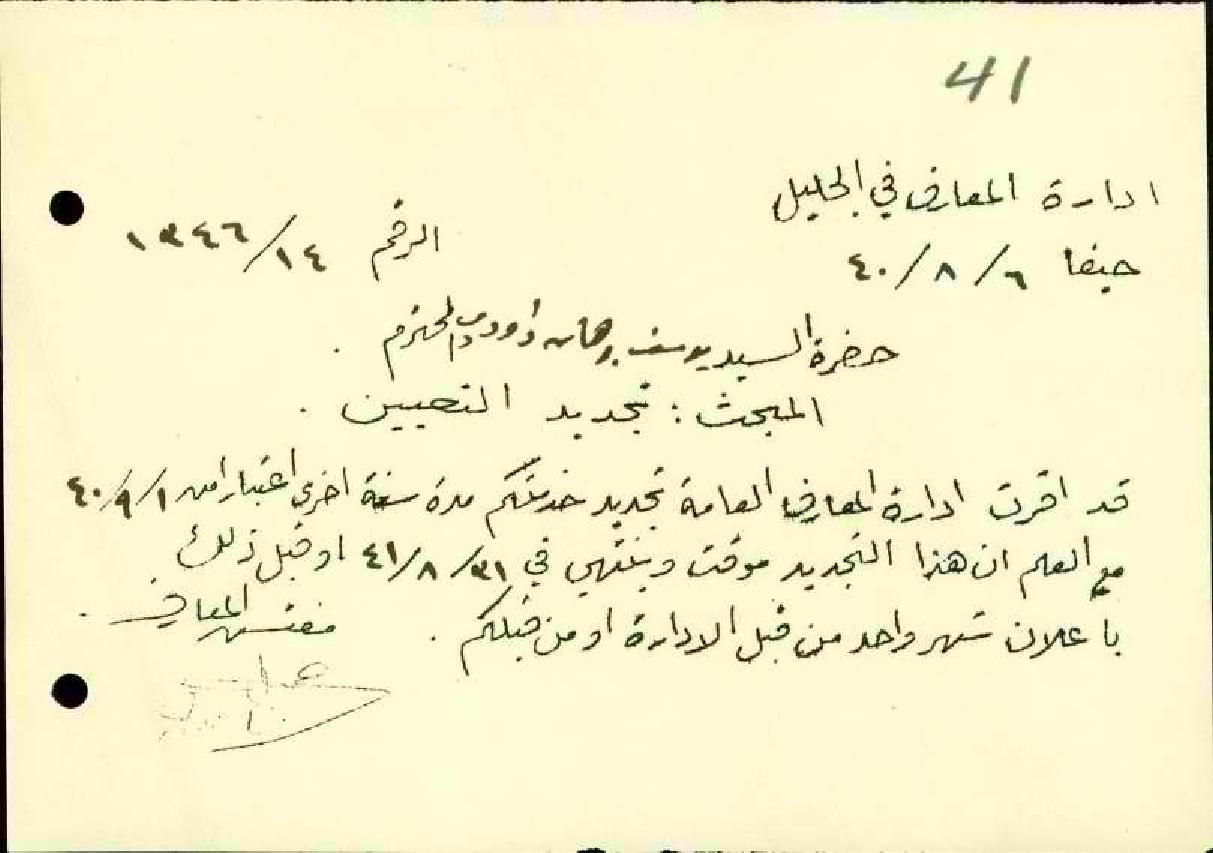 41
ادارة المعارف في الجليل
حيفا ٦/٨/٤٠
الرقم ١٤/١٣٤٦
حضرة السيد يوسف برهان داودي المحترم .
المبحث : تجديد التعيين .
قد اقرت ادارة المعارف العامة تجديد خدمتكم مدة سنة اخرى اعتبارا من ٤٠/٩/١
مع العلم ان هذا التجديد موقت وينتهي في ٤١/٨/٣١ او قبل ذلك
باعلان شهر واحد من قبل الادارة او من قبلكم .
مفتش المعارف .